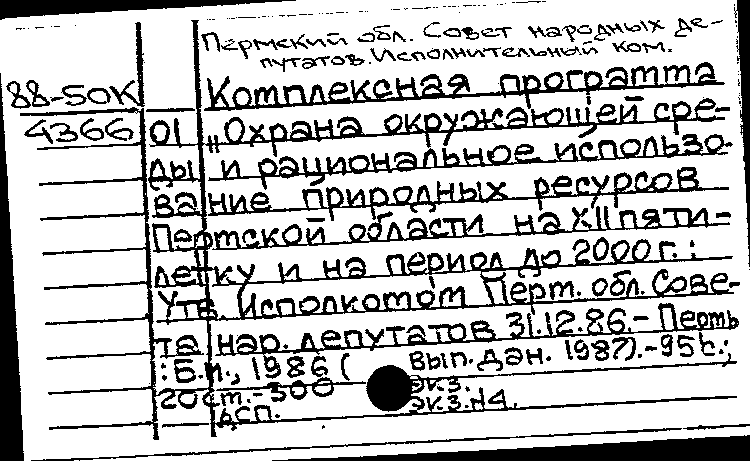 Пермский обл. Совет народных де-
путатов. Исполнительный ком.
88-50К Комплексная программа
4366 01 „Охрана окружающей сре-
ды и рациональное использо-
вание природных ресурсов
Пермской области на XII пяти-
летку и на период до 2000 г.:
Утв. Исполкомом Перм. обл. Сове-
та нар. депутатов 31.12.86.- Пермь
: Б.и., 1986 ( Вып. дан. 1987).-95с.;
20см.-300 экз.
ДСП. Экз.N4.